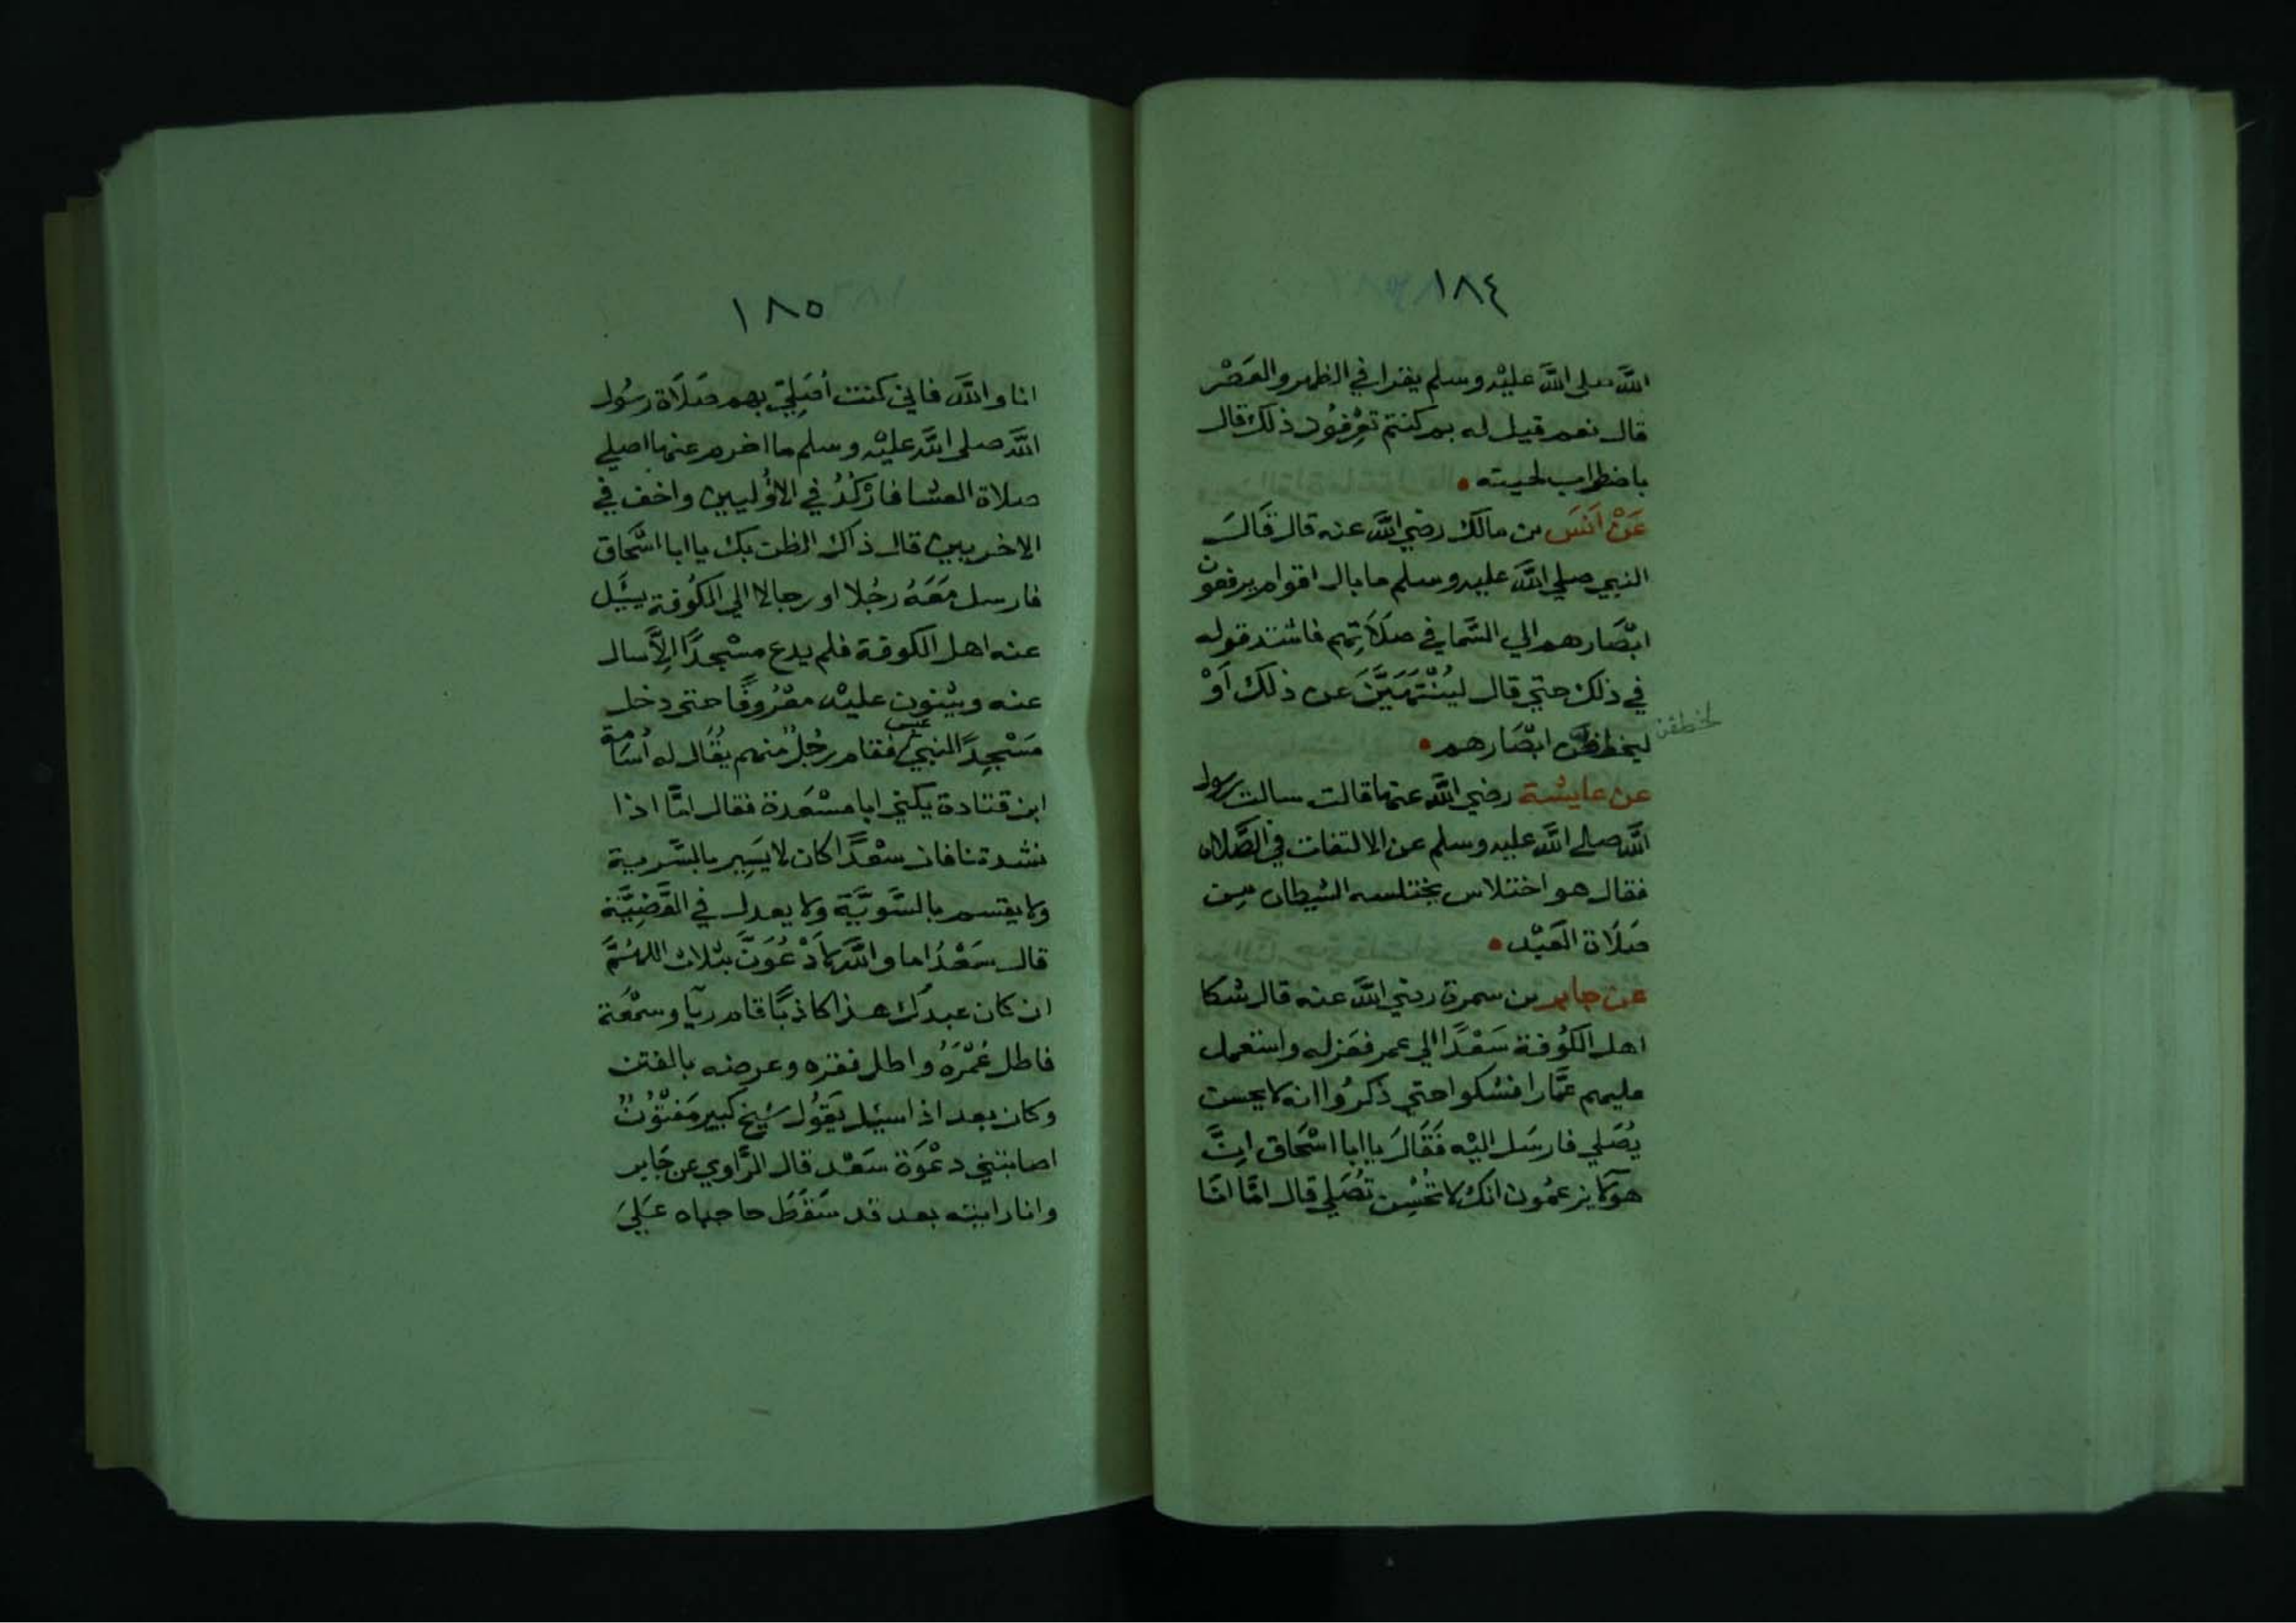 ١٨٤
الله صلى الله عليْه وسلم يقرا في الظهر والعَصْر
قال نعم قيل له بم كنتم تعْرِفُون ذلك قال
باضطراب لحيته
عَنْ اَنَس بن مالك رضي الله عنه قال قَالَ
النبي صلي الله عليه وسلم ما بال اقوام يرفعون
ابْصَارهم الي السَّما في صَلَاتِهم فاشتد قوله
في ذلك حتي قال ليُنْتَهَيَنَّ عن ذلك اَوْ
ليخطفن ابْصَارهم
لتخطفن
عن عايشة رضي الله عنها قالت سالت رسول
الله صلي الله عليه وسلم عن الالتفات في الصَّلاه
فقال هو اختلاس يختلسه الشيطان مِن
صَلَاة العَبْد
عن جابر بن سمرة رضي الله عنه قال شكا
اهل الكُوفة سَعْدًا الي عمر فعَزله واستعمل
عليهم عَمَّارا فشكوا حتي ذكرُوا انه لا يحسن
يُصَلي فارسَل اليْه فَقَالَ يا ابا اسْحَاق اِنَّ
هؤلا يزعمُون انك لا تحُسِن تُصَلي قال امَّا انَا
١٨٥
انا والله فاني كنت أصَلِي بهم صَلَاة رسُول
الله صلى الله عليْه وسلم ما اخرم عنها اصلي
صلاة العشا فارْكُدُ في الاؤُليين واخف في
الاخريين قال ذاك الظن بك يا ابا اسْحَاق
فارسل مَعَهُ رجُلا او رجالا الي الكُوفة يسْئَل
عنه اهل الكوفة فلم يدع مسْجدًا اِلَّا سال
عنه ويثنون عليْه معْرُوفًا حتي دخل
مَسْجِدًا لبني عبس فقام رجُلٌ منهم يقُال له أسَامة
ابن قتادة يكني ابا مسْعَدة فقال امَّا اذا
نشدتنا فان سعْدًا كان لا يَسِير بالسَّرية
ولا يقسم بالسَّويَّة ولا يعدل في القَضِيَّة
قال سَعْدُ اما والله لَادْعُوَنَّ بثلاث اللهُمَّ
ان كان عبدك هذا كاذبًا قام ريآ وسمْعَة
فاطل عُمْرَهُ واطل فقره وعرضه بالفتن
وكان بعد اذا سيئل يَقوُل شيخ كبير مَفتُوْنٌ
اصابتني دعْوَة سَعْد قال الرَّاوي عن جَابر
وانا رايته بعد قد سَقَطَ حاجباه عَلَيَ